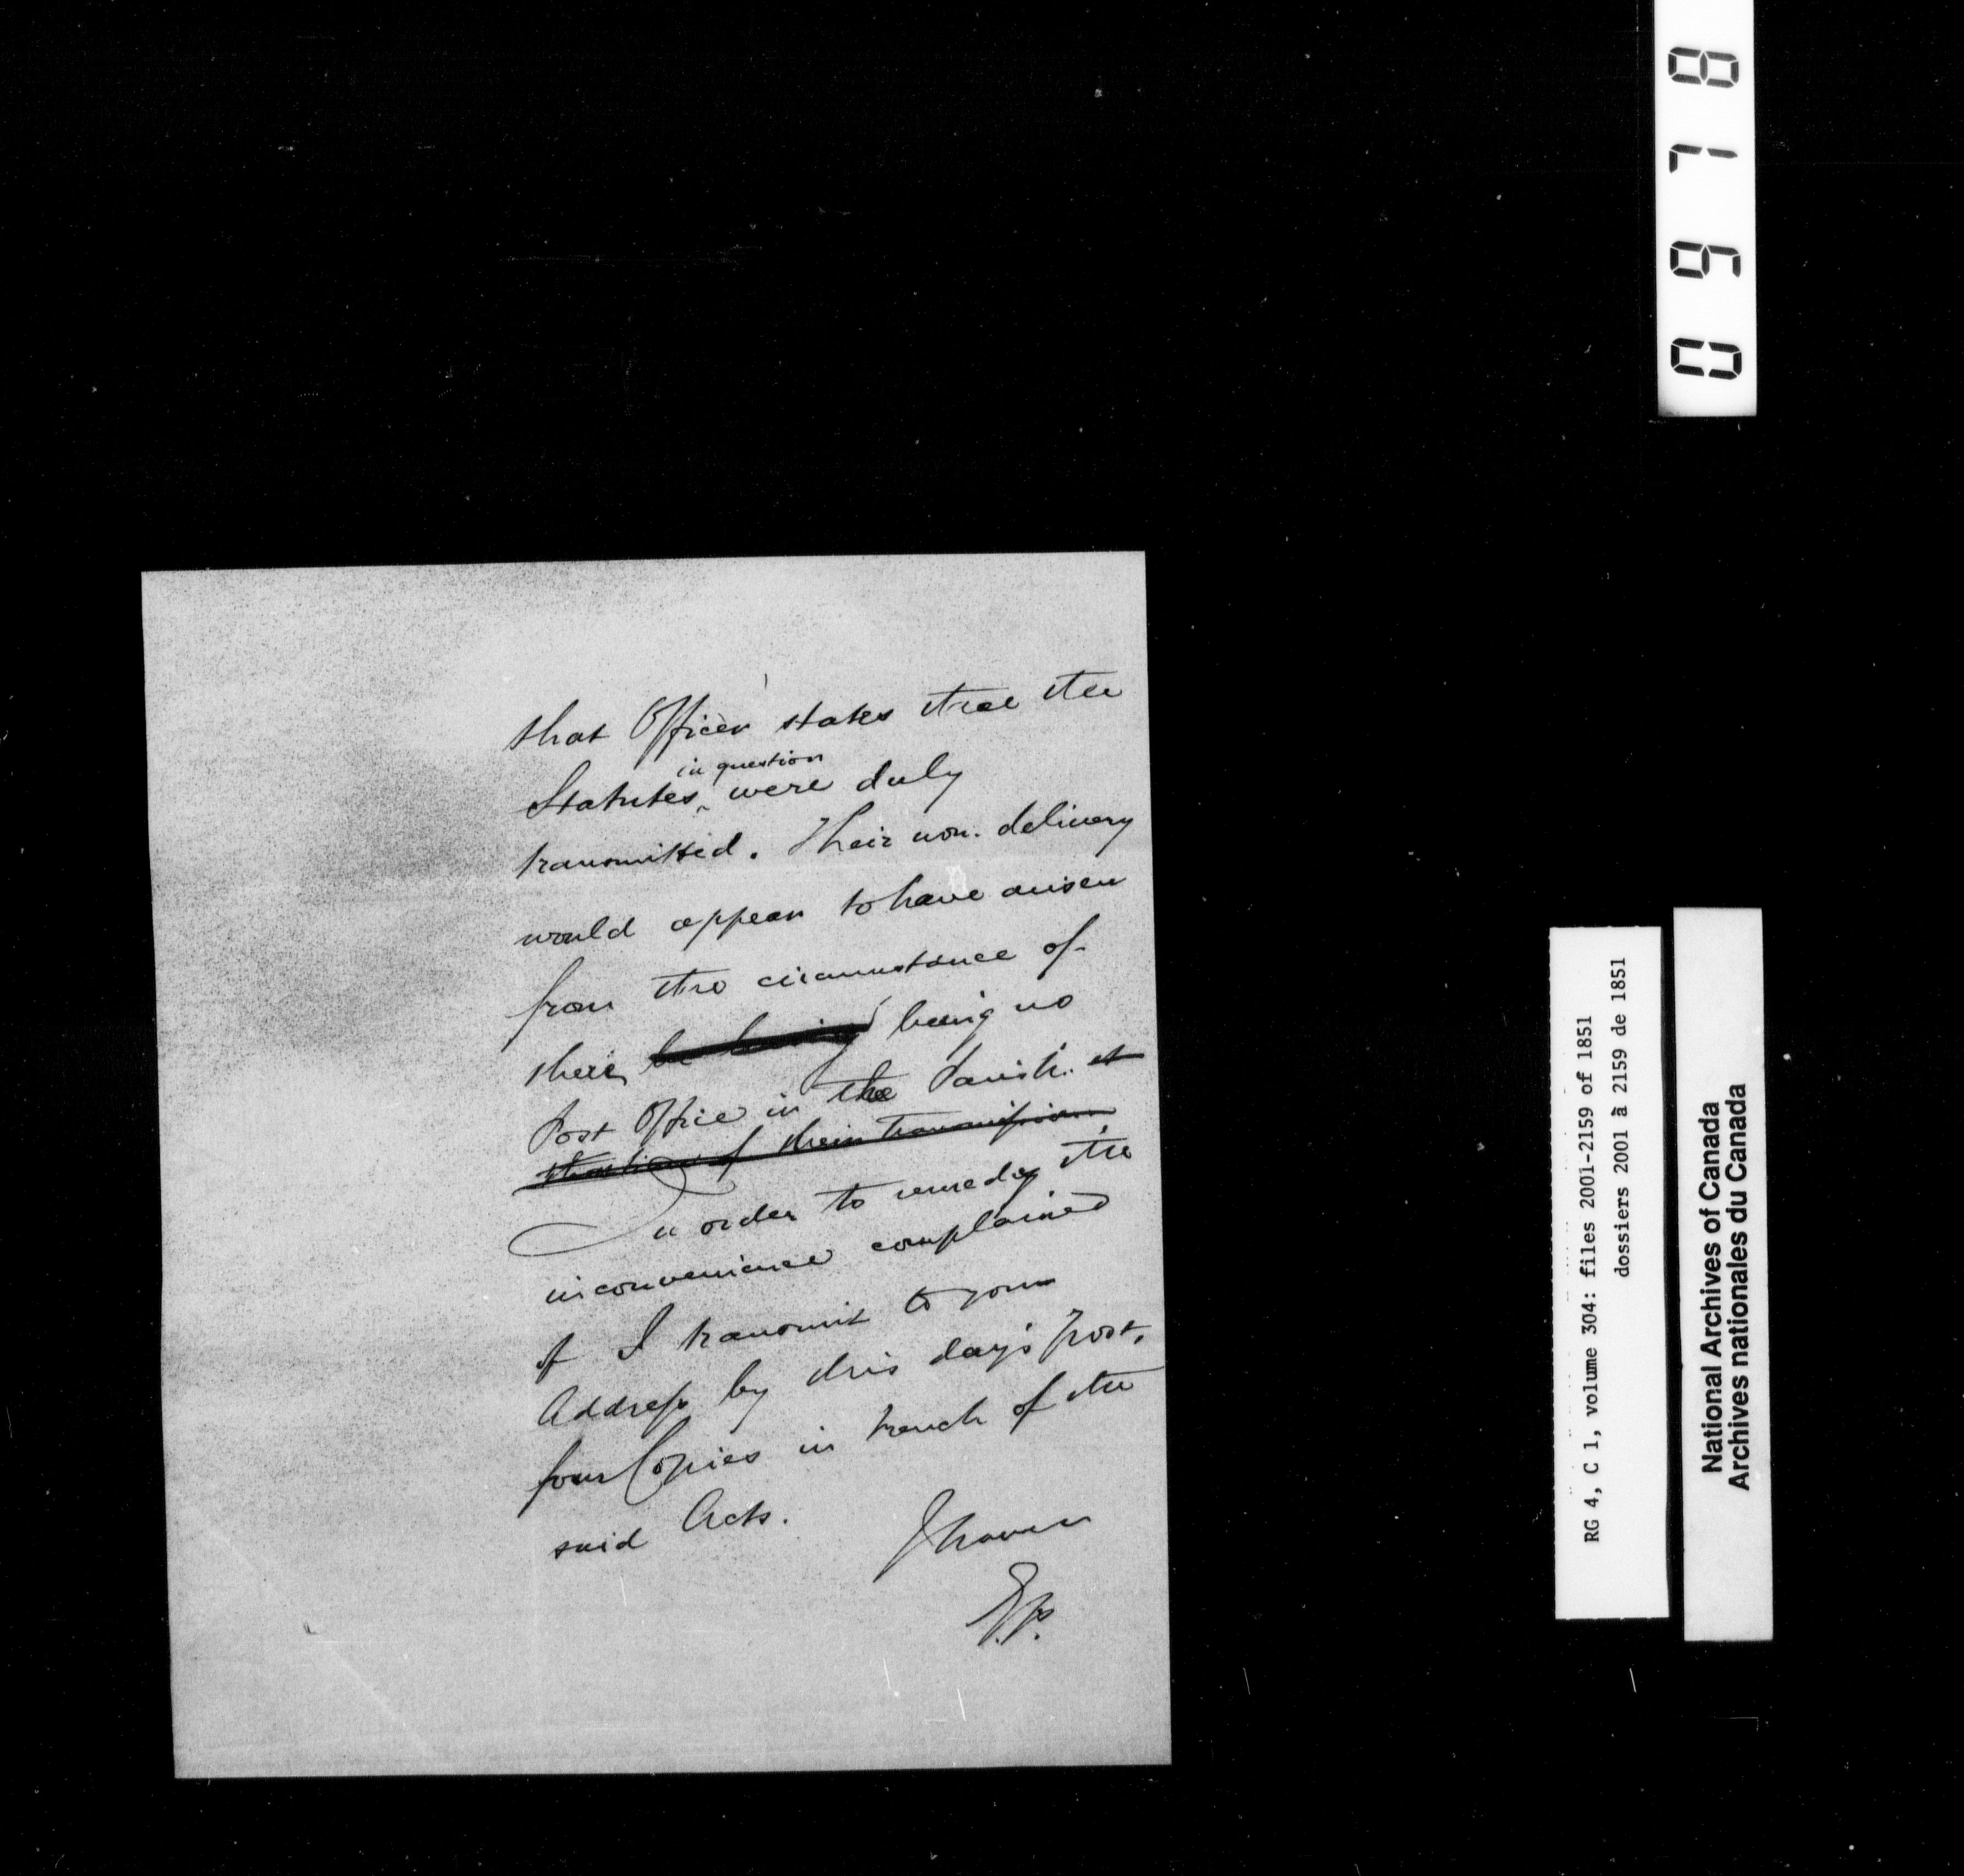 that Officer states that the
in question
Statutes, were duly
transmitted. Their non-delivery
would appear to have arisen
from the circumstance of
there being no
Post Office in the Parish. at
of their transmission
In order to remedy the
inconvenience complained
of I transmit to your
Address by this day's post.
four Copies in French of the
said Acts.
I have
0978
RG 4, C 1, volume 304: files 2001-2159 of 1851
dossiers 2001 à 2159 de 1851
National Archives of Canada
Archives nationales du Canada